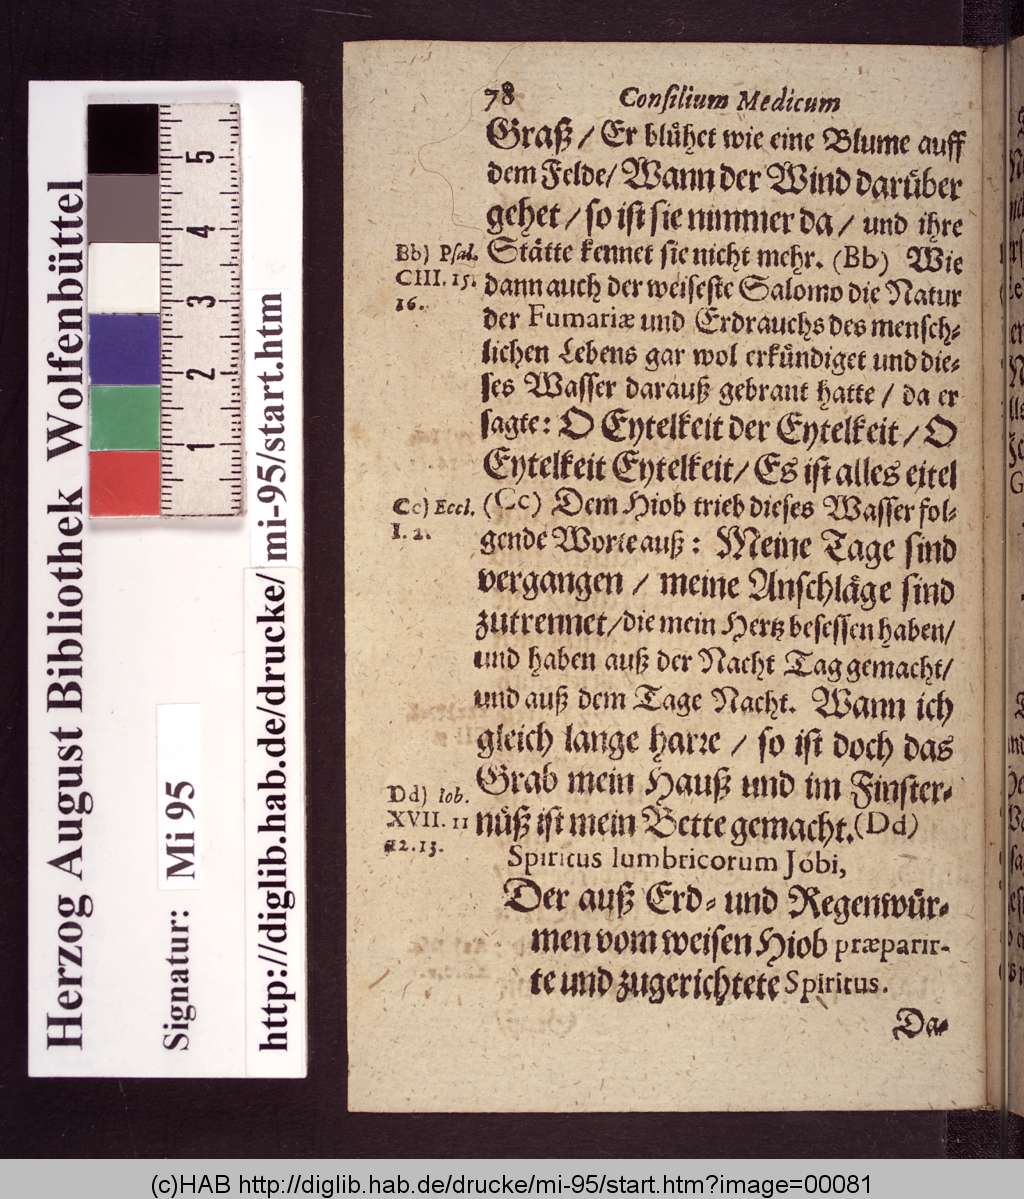 Herzog August Bibliothek Wolfenbüttel
Signatur: Mi 95
http://diglib.hab.de/drucke/ mi-95/start.htm
1 2 3 4 5
78 Conſilium Medicum
Graß / Er blühet wie eine Blume auff
dem Felde/ Wann der Wind darüber
gehet / ſo iſt ſie nimmer da / und ihre
Stätte kennet ſie nicht mehr. (Bb) Wie
Bb) Pſal.
CIII. 15.
16.
dann auch der weiſeſte Salomo die Natur
der Fumariæ und Erdrauchs des menſch-
lichen Lebens gar wol erkündiget und die-
ſes Waſſer darauß gebrant hatte / da er
ſagte: O Eytelkeit der Eytelkeit / O
Eytelkeit Eytelkeit/ Es iſt alles eitel
(Cc) Dem Hiob trieb dieſes Waſſer fol-
Cc) Eccl.
I. 2.
gende Worte auß: Meine Tage ſind
vergangen / meine Anſchläge ſind
zutrennet/ die mein Hertz beſeſſen haben/
und haben auß der Nacht Tag gemacht/
und auß dem Tage Nacht. Wann ich
gleich lange harre / ſo iſt doch das
Grab mein Hauß und im Finſter-
nüß iſt mein Bette gemacht. (Dd)
Dd) Iob.
XVII. 11
12. 13.
Spiritus lumbricorum Jobi,
Der auß Erd- und Regenwür-
men vom weiſen Hiob præparir-
te und zugerichtete Spiritus.
Da-
(c)HAB http://diglib.hab.de/drucke/mi-95/start.htm?image=00081